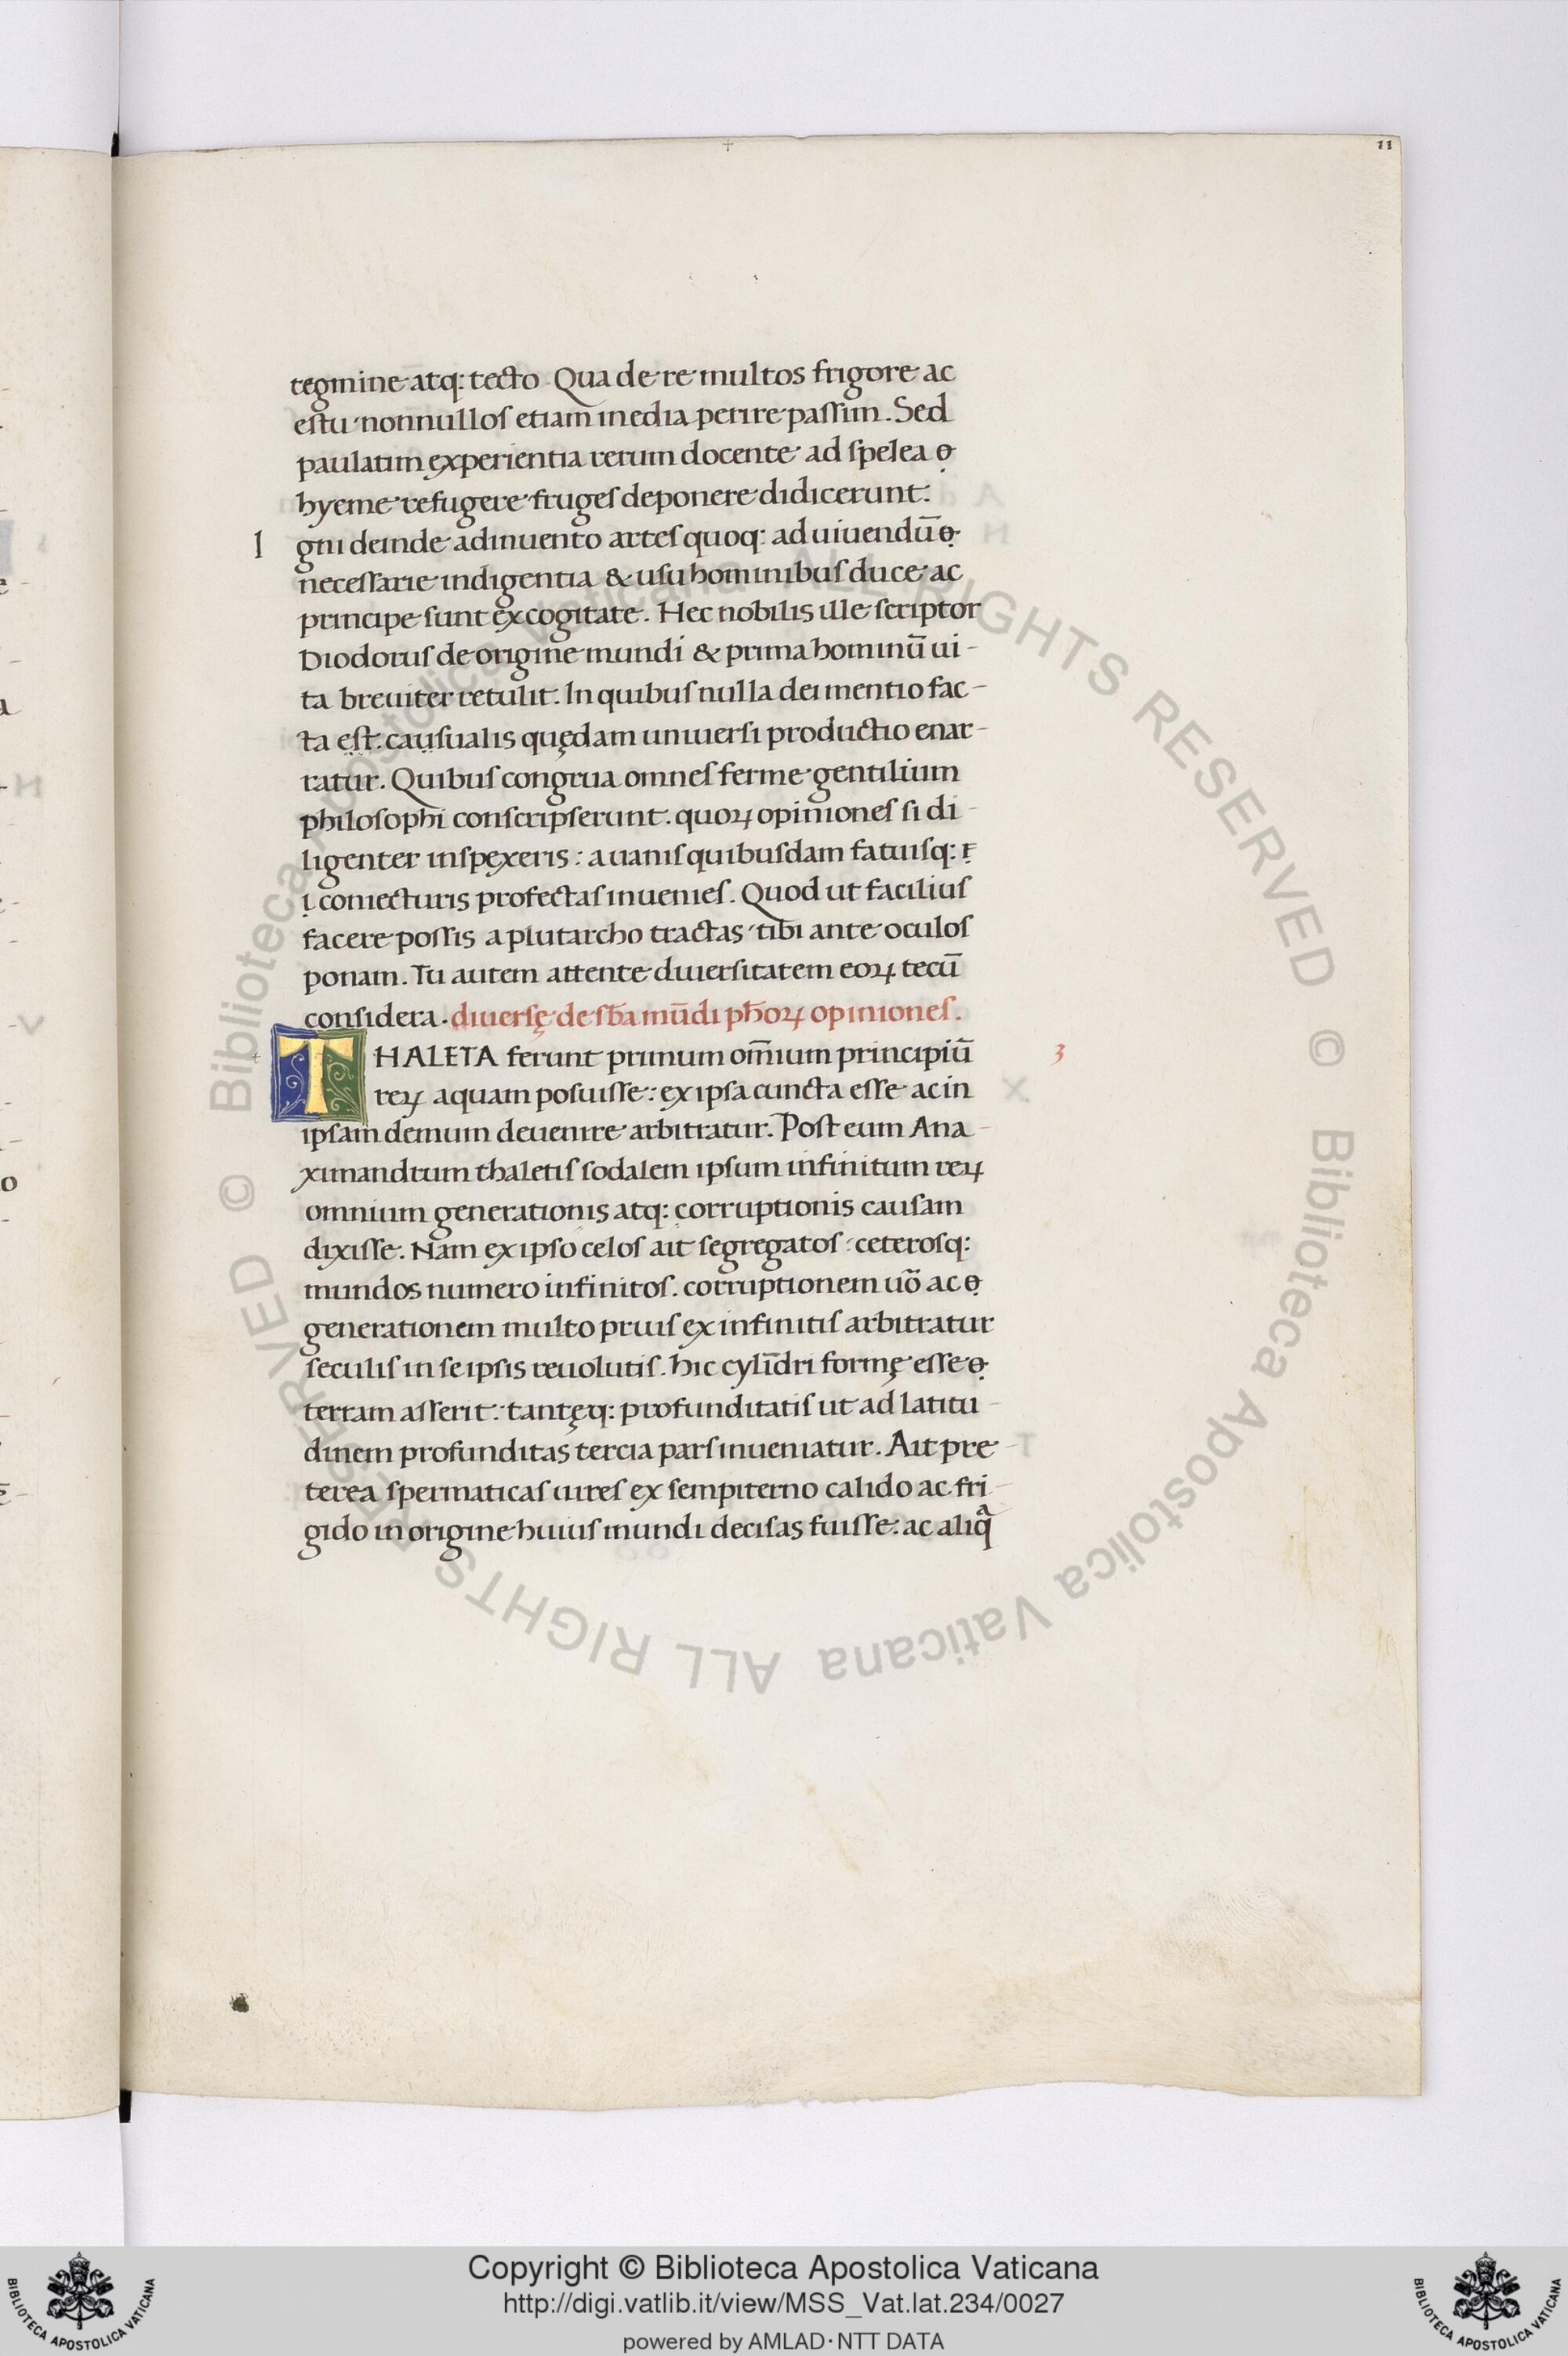 11
tegmine atq: tecto. Qua de re multos frigore ac
estu nonnullos etiam inedia perire passim. Sed
paulatim experientia rerum docente ad spelea
hyeme refugere fruges deponere didicerunt.
I
gni deinde adinuento artes quoq: ad uiuendū
necessarie indigentia & usu hominibus duce ac
principe sunt excogitate. Hec nobilis ille scriptor
Diodorus de origine mundi & prima hominū ui-
ta breuiter retulit. In quibus nulla dei mentio fac-
ta est: causualis quędam uniuersi productio enar-
ratur. Quibus congrua omnes ferme gentilium
philosophi conscripserunt. quoꝝ opiniones si di-
ligenter inspexeris: a uanis quibusdam fatuisq:
coniecturis profectas inuenies. Quod ut facilius
facere possis a plutarcho tractas tibi ante oculos
ponam. Tu autem attente diuersitatem eoꝝ tecū
considera. diuersę de sb̄a mūdi ph̄oꝝ opiniones.
THALETA ferunt primum om̄ium principiū
3
reꝝ aquam posuisse: ex ipsa cuncta esse ac in
ipsam demum deuenire arbitratur. Post eum Ana-
ximandrum thaletis sodalem ipsum infinitum reꝝ
omnium generationis atq: corruptionis causam
dixisse. Nam ex ipso celos ait segregatos: ceterosq:
mundos numero infinitos. corruptionem uō ac
generationem multo prius ex infinitis arbitratur
seculis in se ipsis reuolutis. hic cylīdri formę esse
terram asserit: tantęq: profunditatis ut ad latitu-
dinem profunditas tercia pars inueniatur. Ait pre-
terea spermaticas uires ex sempiterno calido ac fri-
gido in origine huius mundi decisas fuisse: ac aliqͣ
© Biblioteca Apostolica Vaticana ALL RIGHTS RESERVED
© Biblioteca Apostolica Vaticana ALL RIGHTS RESERVED
Copyright © Biblioteca Apostolica Vaticana
http://digi.vatlib.it/view/MSS_Vat.lat.234/0027
powered by AMLAD·NTT DATA
BIBLIOTECA APOSTOLICA VATICANA
BIBLIOTECA APOSTOLICA VATICANA